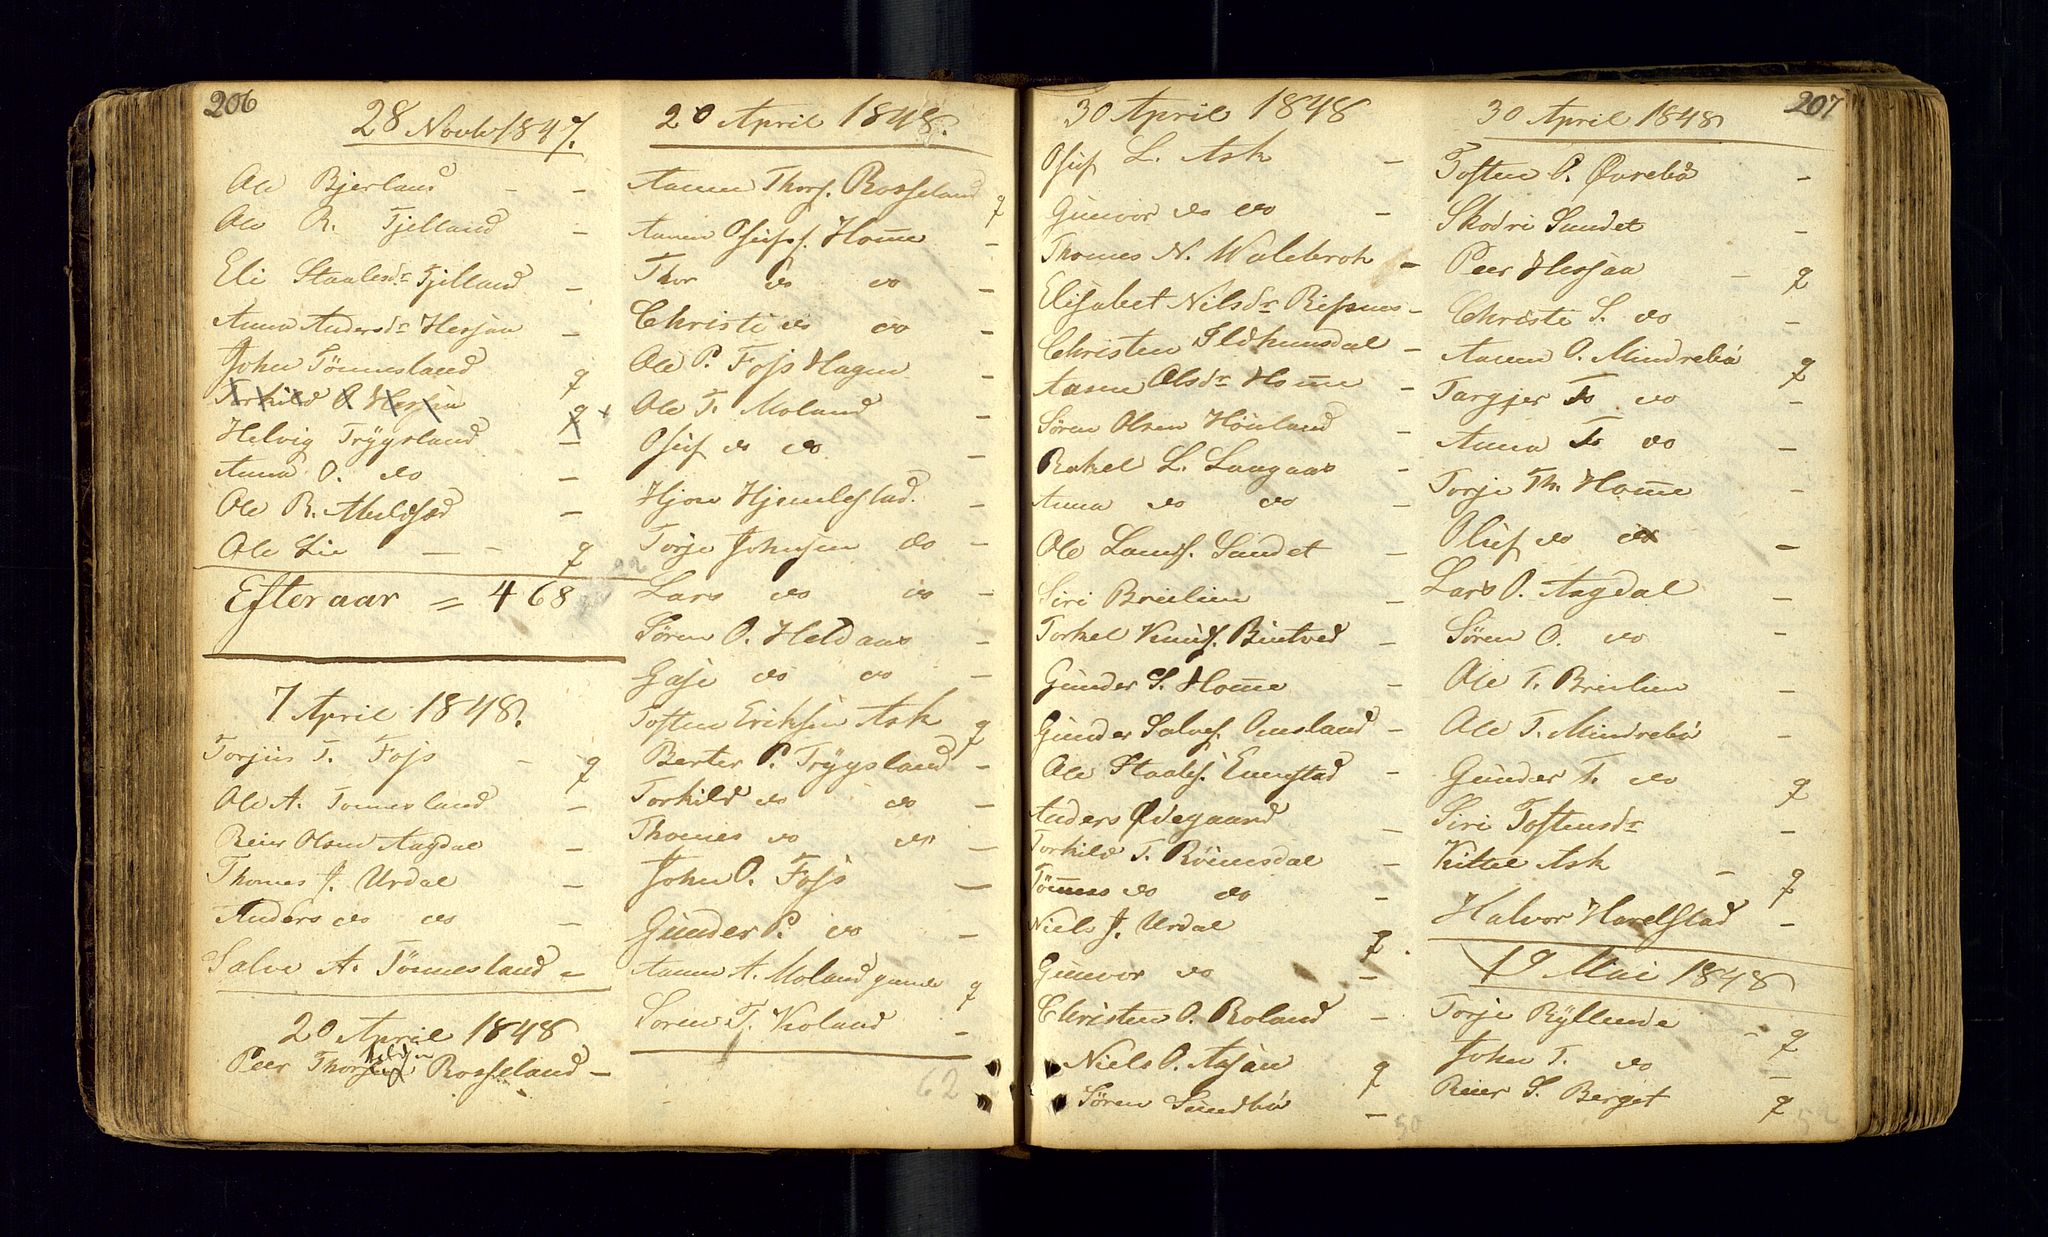 206
28 Novbr 1847.
Ole Bjerland - -
Ole R. Fjelland -
Eli Staalesdr Fjelland -
Anna Andersdr Hessaa -
John Tønnesland q
Torkild O Hessaa q
Helvig Trygsland -
Anna O. do -
Ole R. Abeldsæd -
Ole Lie - - q
Efteraar = 468
7 April 1848.
Torjus T. Foss - q
Ole A. Tonnesland -
Reier Olsen Aagdal -
Thomes J. Urdal -
Anders do do -
Salve A. Tönnesland -
20 April 1848
Peer Thorkildsen Rosseland -
20 April 1848.
Aanen Thors. Rosseland q
Aanen Osufss. Home -
Thor do do -
Christi do do -
Ole P. Foss Hagen -
Ole T. Moland -
Osuf do do -
Hjon Hjemlestad. -
Torje Johnsen do -
Lars do do -
Sören O. Heldaas -
Gase do do -
Tosten Eriksen Ask q
Berter P. Trÿgsland -
Torkild do do -
Thomes do do -
John O. Foss -
Gunder P. do -
Aanen A. Moland gamle q
Soren T. Koland -
62
207
30 April 1848
Osuf L. Ask -
Gunvor do do -
Thomes N. Walebrok -
Elisabet Nilsdr Risnes -
Christen Ildhunsdal -
Aasne Olsdr Home -
Sören Olsen Hönland -
Rakel L. Laagaas -
Anna do do -
Ole Lamss. Sundet -
Siri Breilien -
Torkel Knuds. Bintved -
Gunder S. Home -
Gunder Salves. Omsland -
Ole Staaless. Eungstad -
Anders Ødegaard -
Torkild T. Röinsdal -
Tönnes do do -
Niels J. Urdal q.
Gunvor do -
Christen O. Roland -
Niels O. Assän q
Sören Sundbö -
50
30 April 1848
Tosten O. Øvrebö -
Skodri Sundet -
Peer Hessaa - q
Christi S. do -
Aanen O. Mindrebö q
Targjer T. do -
Anna T. do -
Torje Th. Home -
Oluf do do -
Lars O. Aagdal -
Sören O. do -
Ole T. Breilien -
Ole T. Mindrebö -
Gunder T. do q
Siri Tostensdr -
Kittel Ask - q
Halvor Harelstad -
19 Mai 1848
Torje Rÿllende - q
John T. do -
Reier S. Berget q
52